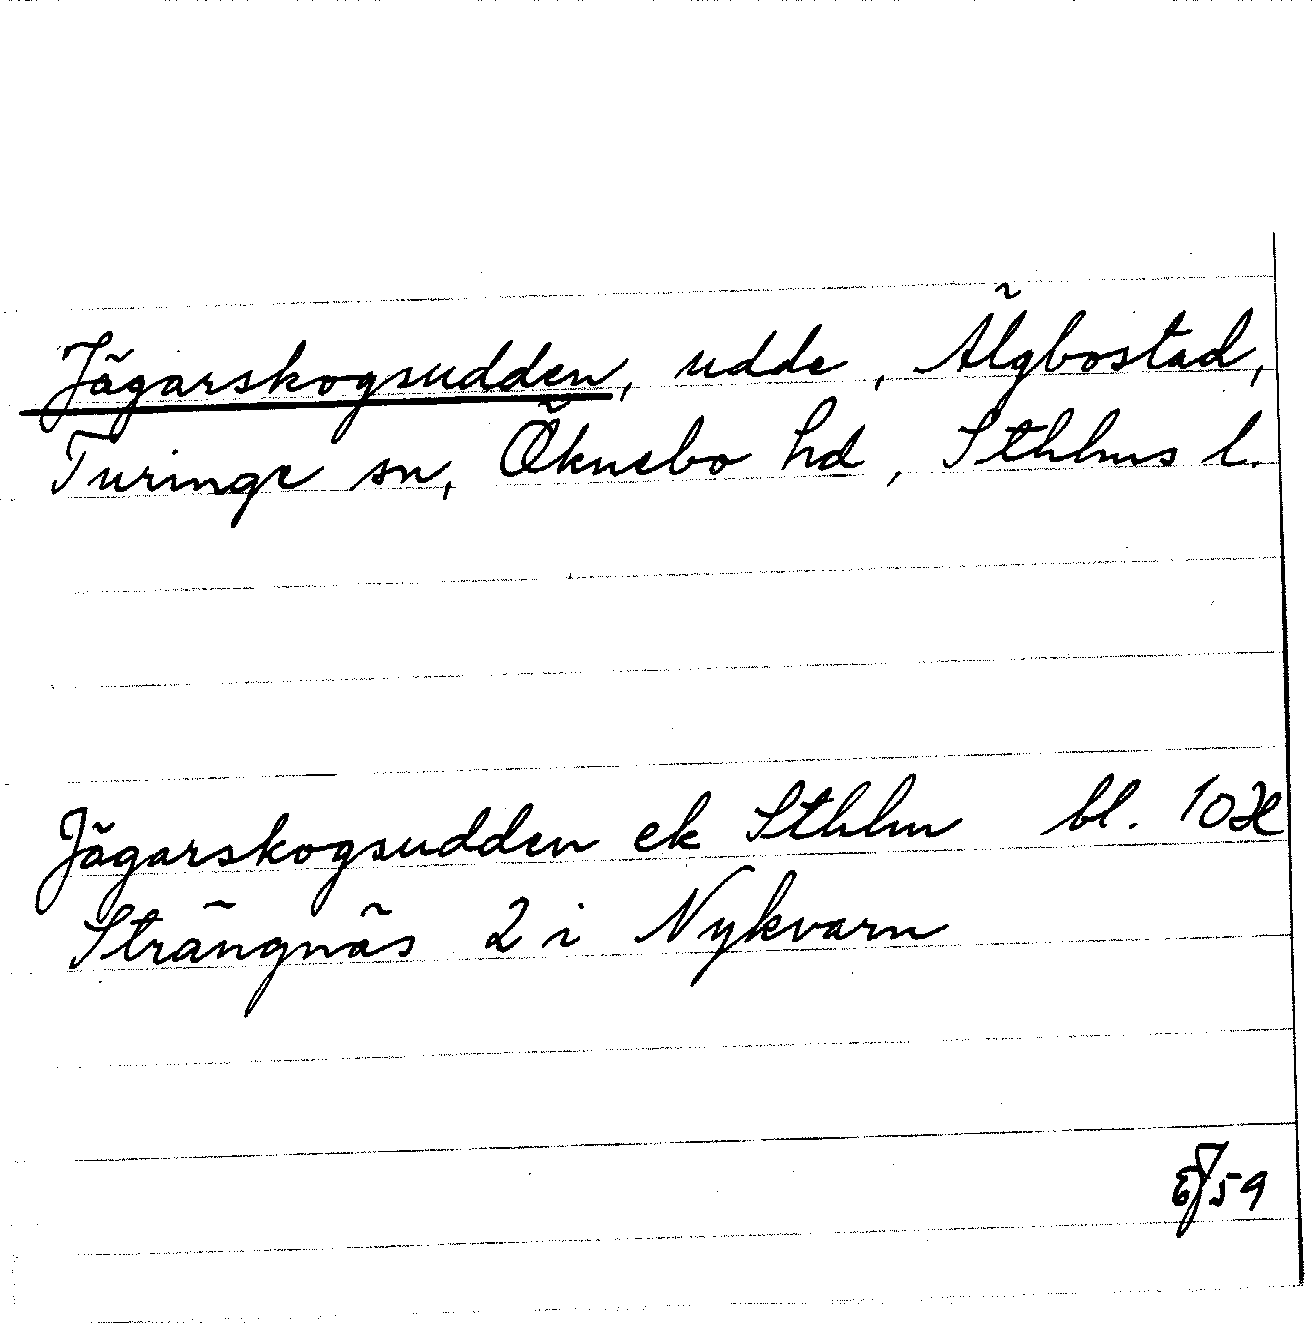 Jägarskogsudden, udde, Älgbostad,
Turinge sn, Öknebo hd, Sthlms l.
Jägarskogsudden ek Sthlm bl. 10H
Strängnäs 2 i Nykvarn
59